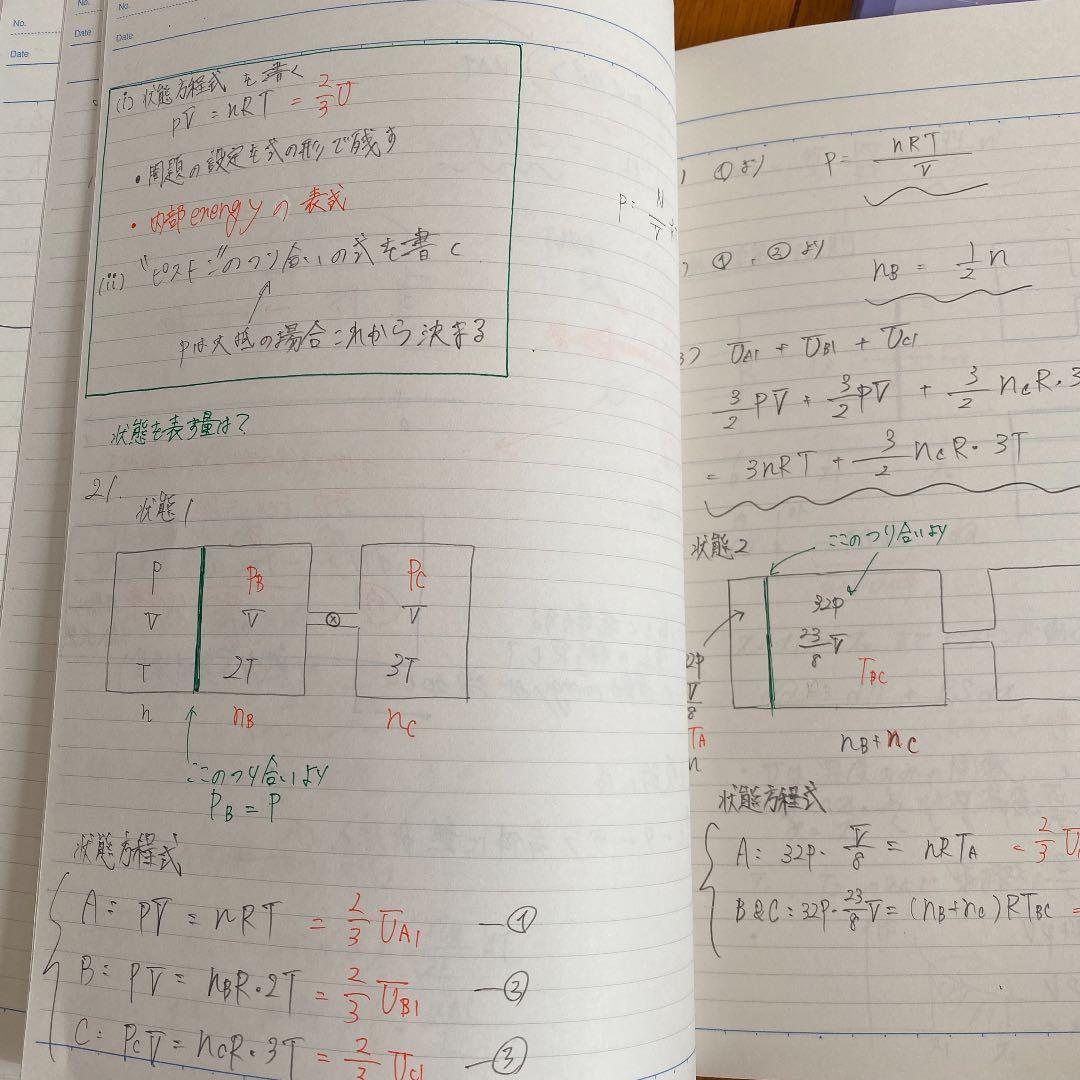 No.
Date
No.
Date
(i) 状態方程式を書く
pV = nRT = 2/3 U
・問題の設定を式の形で残す
・内部energyの表式
(ii) "ピストン"のつり合いの式を書く
pは大抵の場合これから決まる
状態を表す量は?
21.
状態1
P PB PC
V V ⊗ V
T 2T 3T
n nB nC
ここのつり合いより
PB = P
状態方程式
A: PV = nRT = 2/3 UA1 —①
B: PV = nBR・2T = 2/3 UB1 —②
C: PCV = nCR・3T = 2/3 UC1 —③
) ①より P = nRT/V
) ①,②より
nB = 1/2 n
3) UA1 + UB1 + UC1
3/2 PV + 3/2 PV + 3/2 nCR・3
= 3nRT + 3/2 nCR・3T
状態2
ここのつり合いより
32P
23/8 V
TBC
32P
V/8
TA
n
nB+nC
状態方程式
A: 32P・V/8 = nRTA = 2/3 U
B&C: 32P・23/8 V = (nB+nC)RTBC =